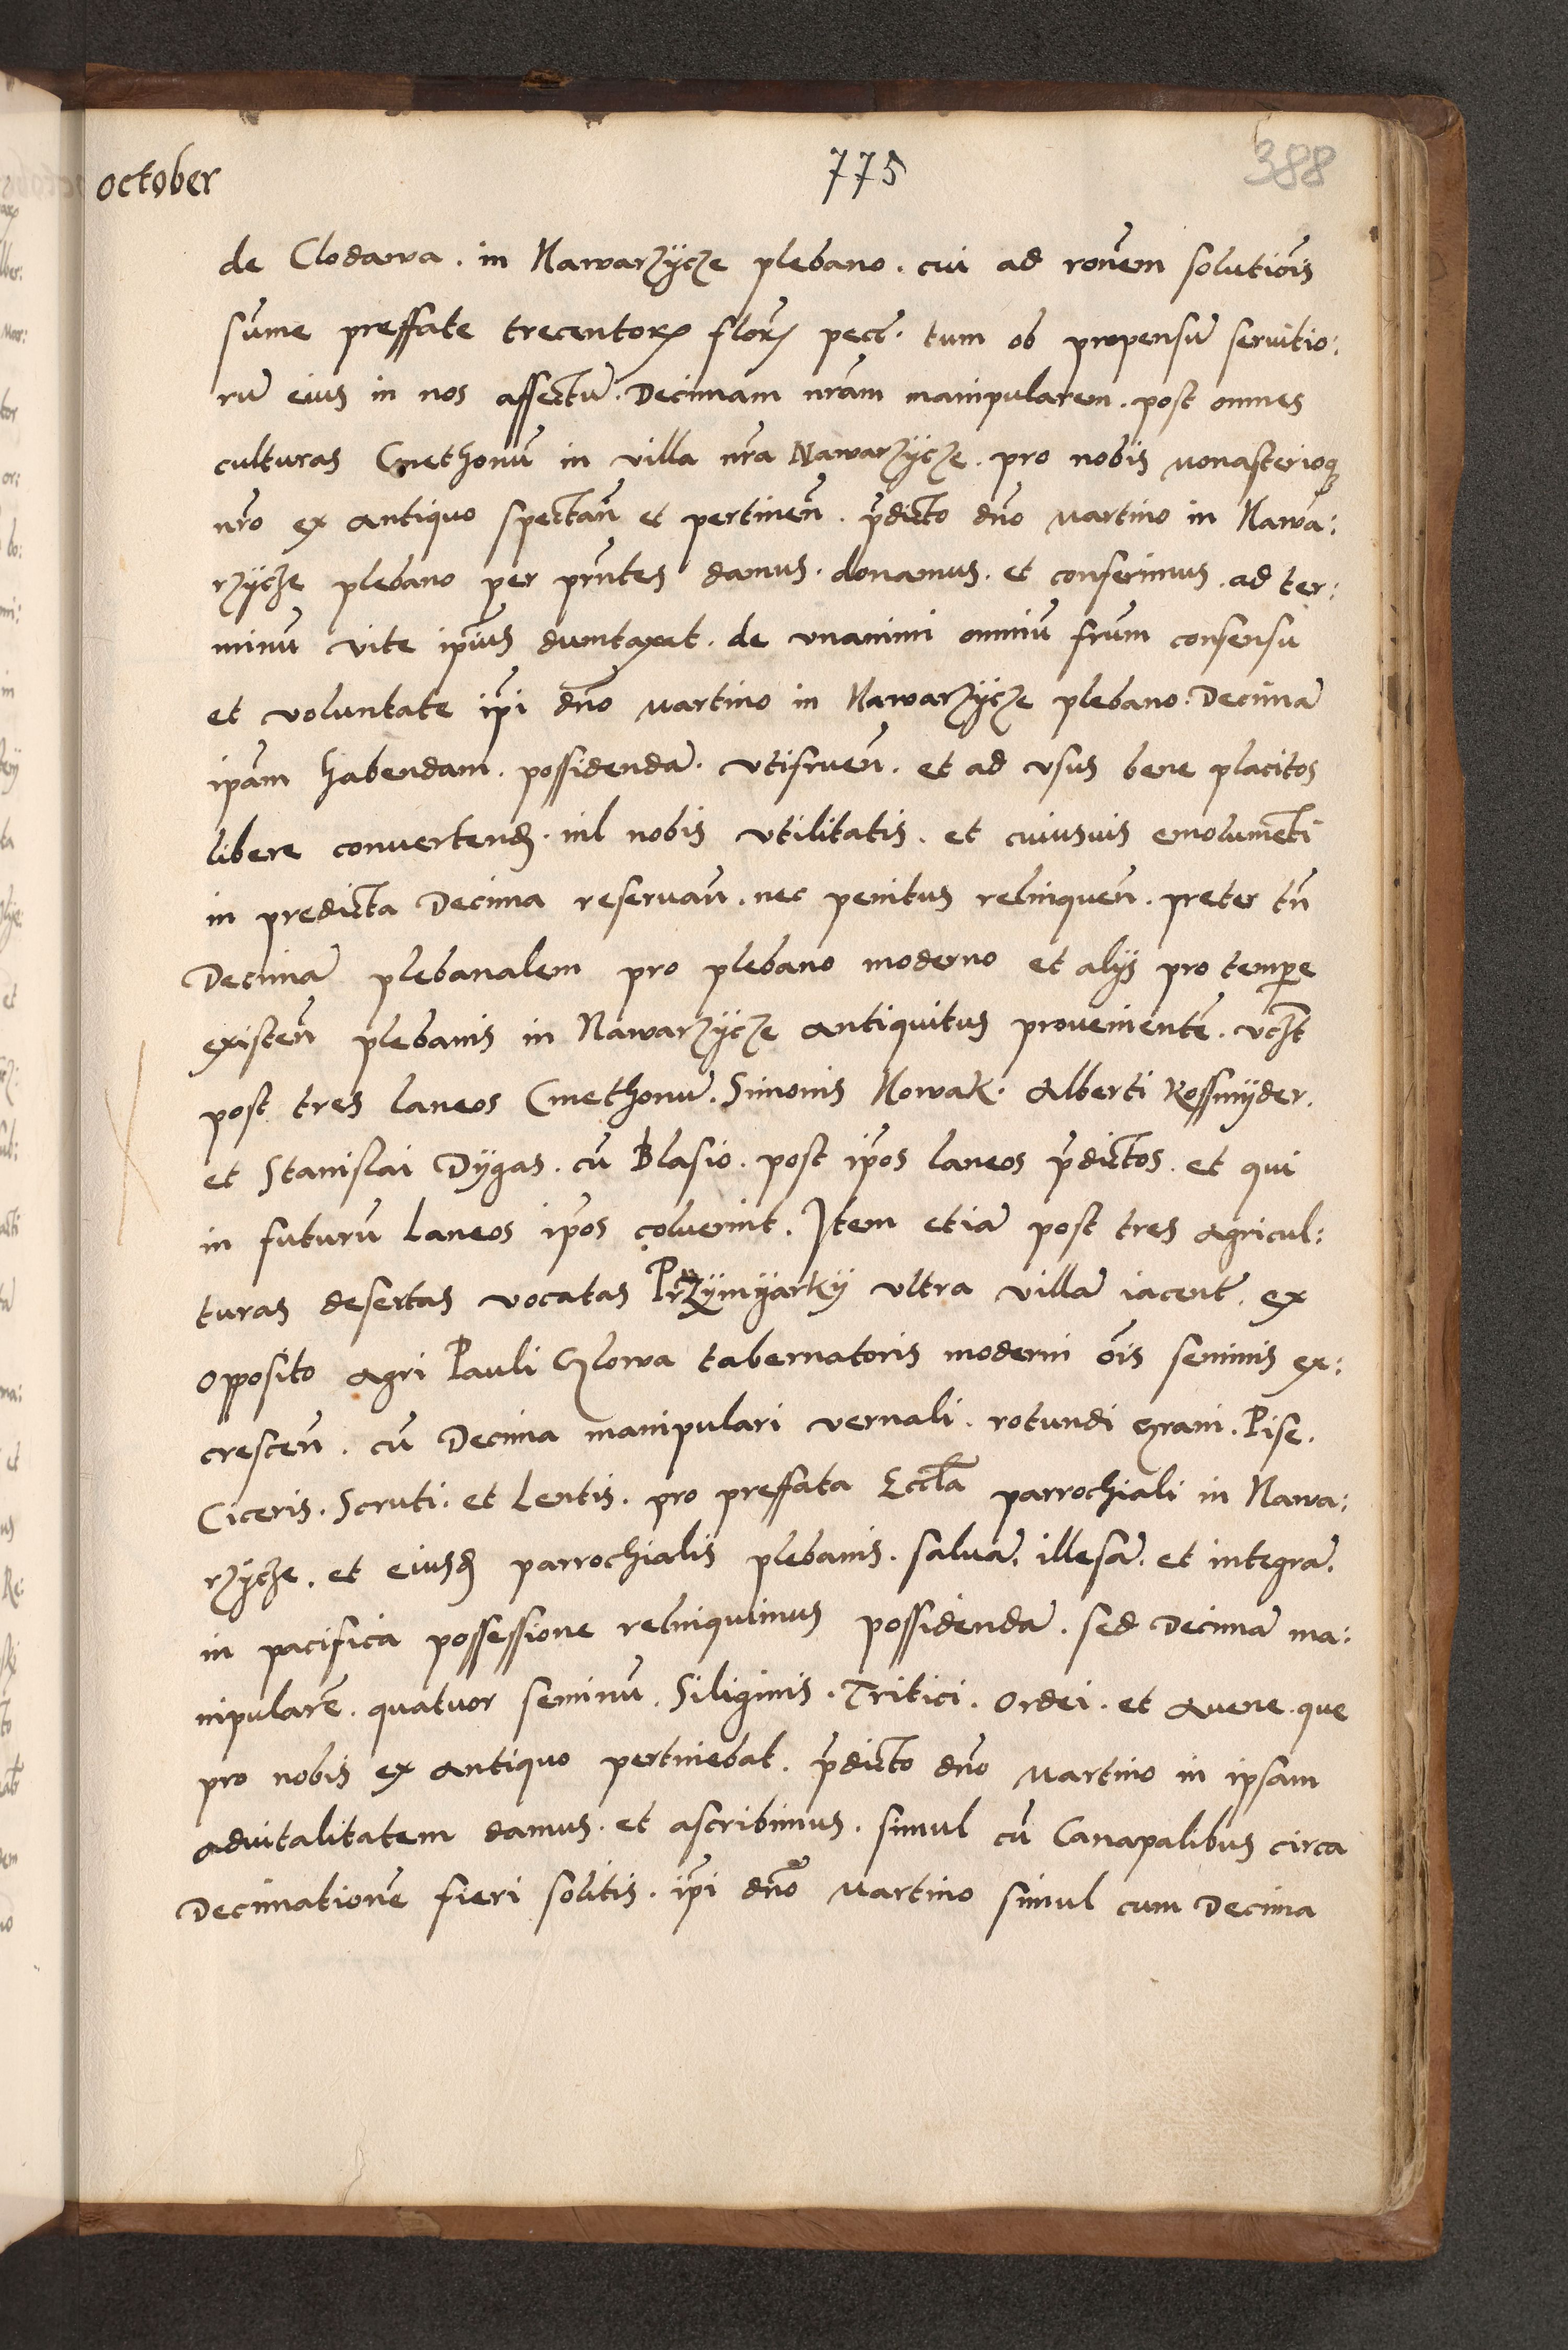 october
775
388
de Clodawa . in Nawarzÿcze plebano . cui ad rōnem solutiōis
sūme preffate trecentorꝝ florꝝ pecc̄ . tum ob propensū seruitio:
rū eius in nos affectū . Decimam nrām manipularem . post omnes
culturas Cmethonū in villa nrā Nawarzÿcze . pro nobis monasterioqꝫ
nrō ex antiquo spectan̄ et pertinen̄ . p̄dicto dn̄o Martino in Nawa:
rzÿcze plebano per prn̄tes damus . donamus . et conferimus . ad ter:
minū vite ip̄ius dumtaxat . de vnanimi omniū frūm consensu
et voluntate ip̄i dn̄o Martino in Nawarzÿcze plebano . Decimā
ip̄am habendam . possidendā . vtifruen̄ . et ad vsus bene placitos
libere conuertend̄ . nil nobis vtilitatis . et cuiusuis emolumēti
in predicta Decima reseruan̄ . nec penitus relinquen̄ . preter tn̄
Decimā plebanalem pro plebano moderno et alÿs pro tempe
existen̄ plebanis in Nawarzÿcze antiquitus prouenientē . vcƶt
post tres laneos Cmethonū . Simonis Nowak . Alberti Kossmÿder .
et Stanislai Dÿgas . cū Blasio . post ip̄os laneos p̄dictos . et qui
in futurū laneos ip̄os coluerint . Item etiā post tres agricul:
turas desertas vocatas Przÿmÿarkÿ vltra villā iacent̄ . ex
opposito agri Pauli Glowa tabernatoris moderni ōis seminis ex:
crescen̄ . cū Decima manipulari vernali . rotundi grani . Pise .
Ciceris . Scruti . et Lentis . pro preffata Eccl̄a parrochiali in Nawa:
rzÿcze . et eiusd̄ parrochialis plebanis . saluā . illesā . et integrā .
in pacifica possessione relinquimus possidendā . sed Decimā ma:
nipularē . quatuor seminū . Siliginis . Tritici . Ordei . et Auene . que
pro nobis ex antiquo pertinebat . p̄dicto dn̄o Martino in ipsam
aduitalitatem damus . et ascribimus . simul cū Canapalibus circa
Decimationē fieri solitis . ip̄i dn̄o Martino simul cum Decima